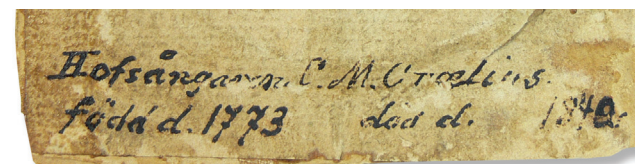 Hofsångaren C. M. Crælius.
född d. 1773 död d. 1842.